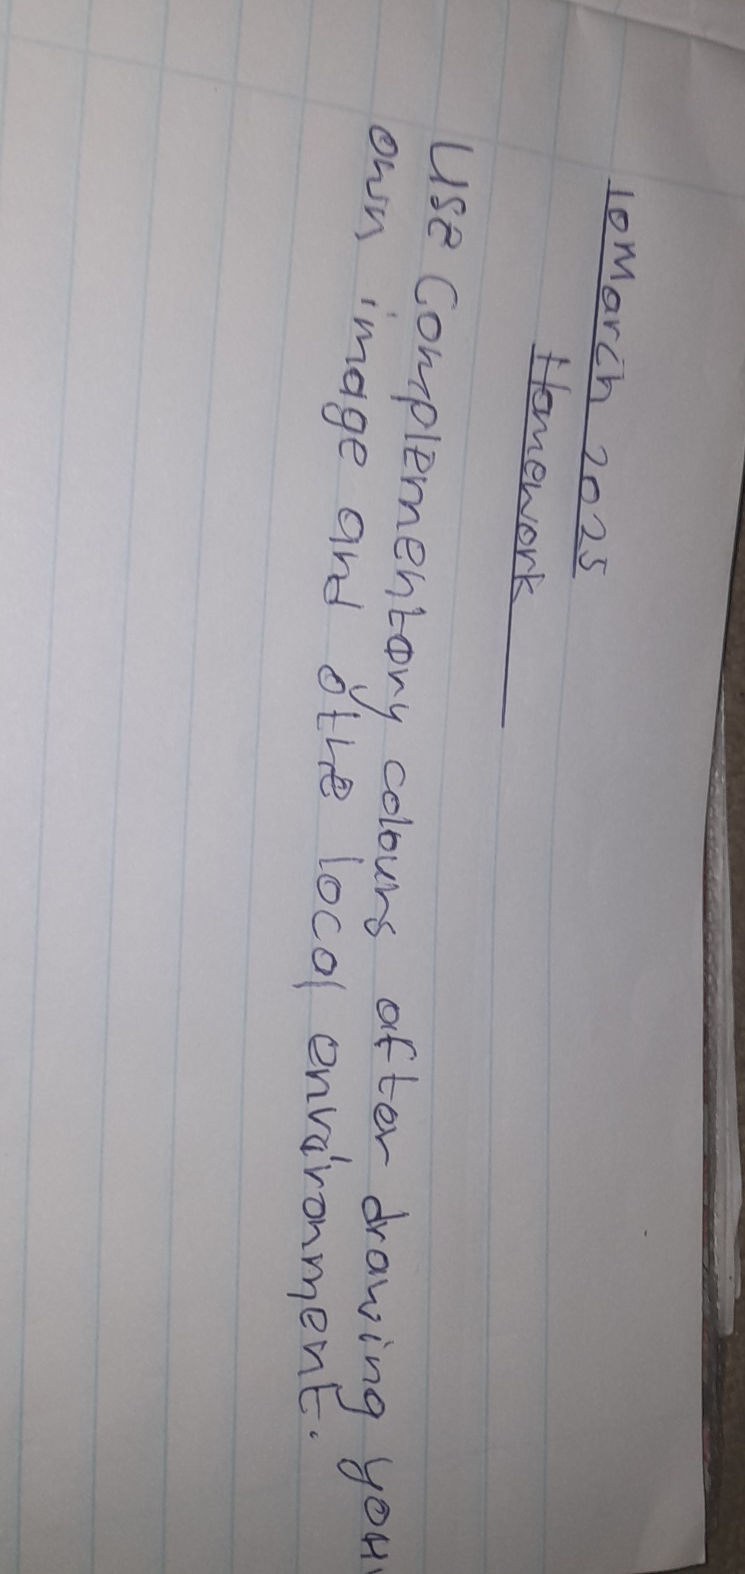 10 March 2025
Homework
Use Complementary colours after drawing your
own image and othe local environment.